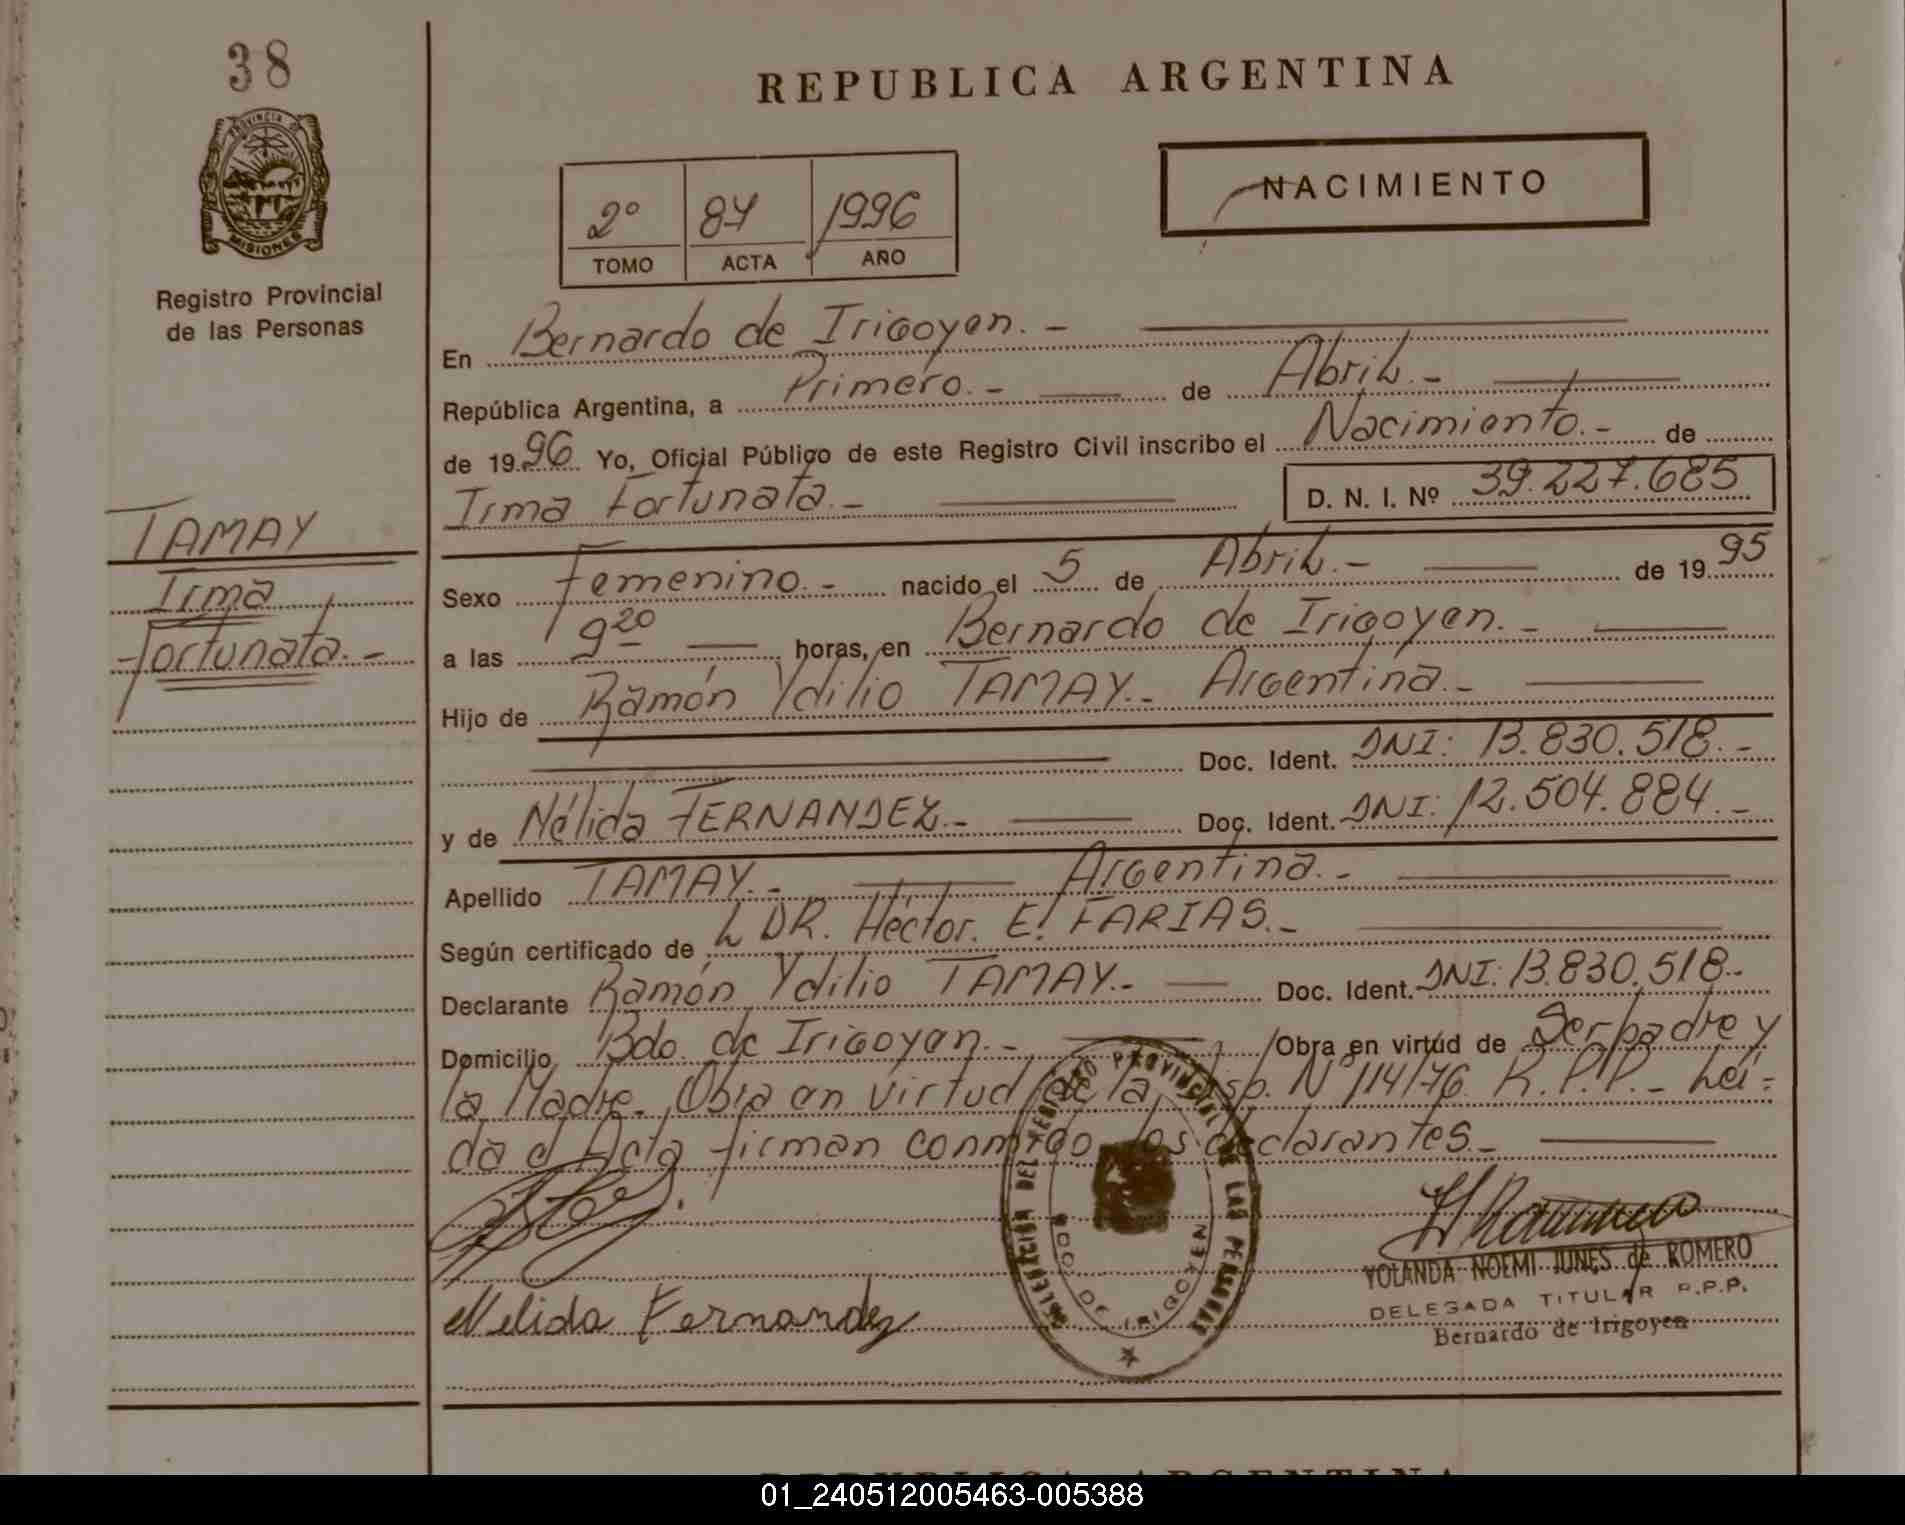 38
REPUBLICA ARGENTINA
PROVINCIA DE
MISIONES
Registro Provincial
de las Personas
2º 87 1996
TOMO ACTA AÑO
NACIMIENTO
En Bernardo de Irigoyen.-
República Argentina, a Primero.- de Abril.-
de 1996 Yo, Oficial Público de este Registro Civil inscribo el Nacimiento.- de
Irma Fortunata.- D. N. I. Nº 39.227.685
TAMAY
Irma
Fortunata.-
Sexo Femenino.- nacido el 5 de Abril.- de 1995
a las 9 20 horas, en Bernardo de Irigoyen.-
Hijo de Ramón Ydilio TAMAY.- Argentina.-
Doc. Ident. DNI: 13.830.518.-
y de Nélida FERNANDEZ.- Doc. Ident. DNI: 12.504.884.-
Apellido TAMAY.- Argentina.-
Según certificado de L DR. Héctor. E. FARIAS.-
Declarante Ramón Ydilio TAMAY.- Doc. Ident. DNI: 13.830.518.-
Domicilio Bdo. de Irigoyen.- Obra en virtud de Ser padre y
la Madre. Obra en virtud de la Disp. Nº 114/76 R.P.P.- Leí=
da el Acta firman conmigo los declarantes.-
DELEGACIÓN DEL REGISTRO PROVINCIAL DE LAS PERSONAS
BDO. DE IRIGOYEN
YOLANDA NOEMI JUNES de ROMERO
DELEGADA TITULAR R.P.P.
Bernardo de Irigoyen
Nelida Fernandez
REPUBLICA ARGENTINA
01_240512005463-005388